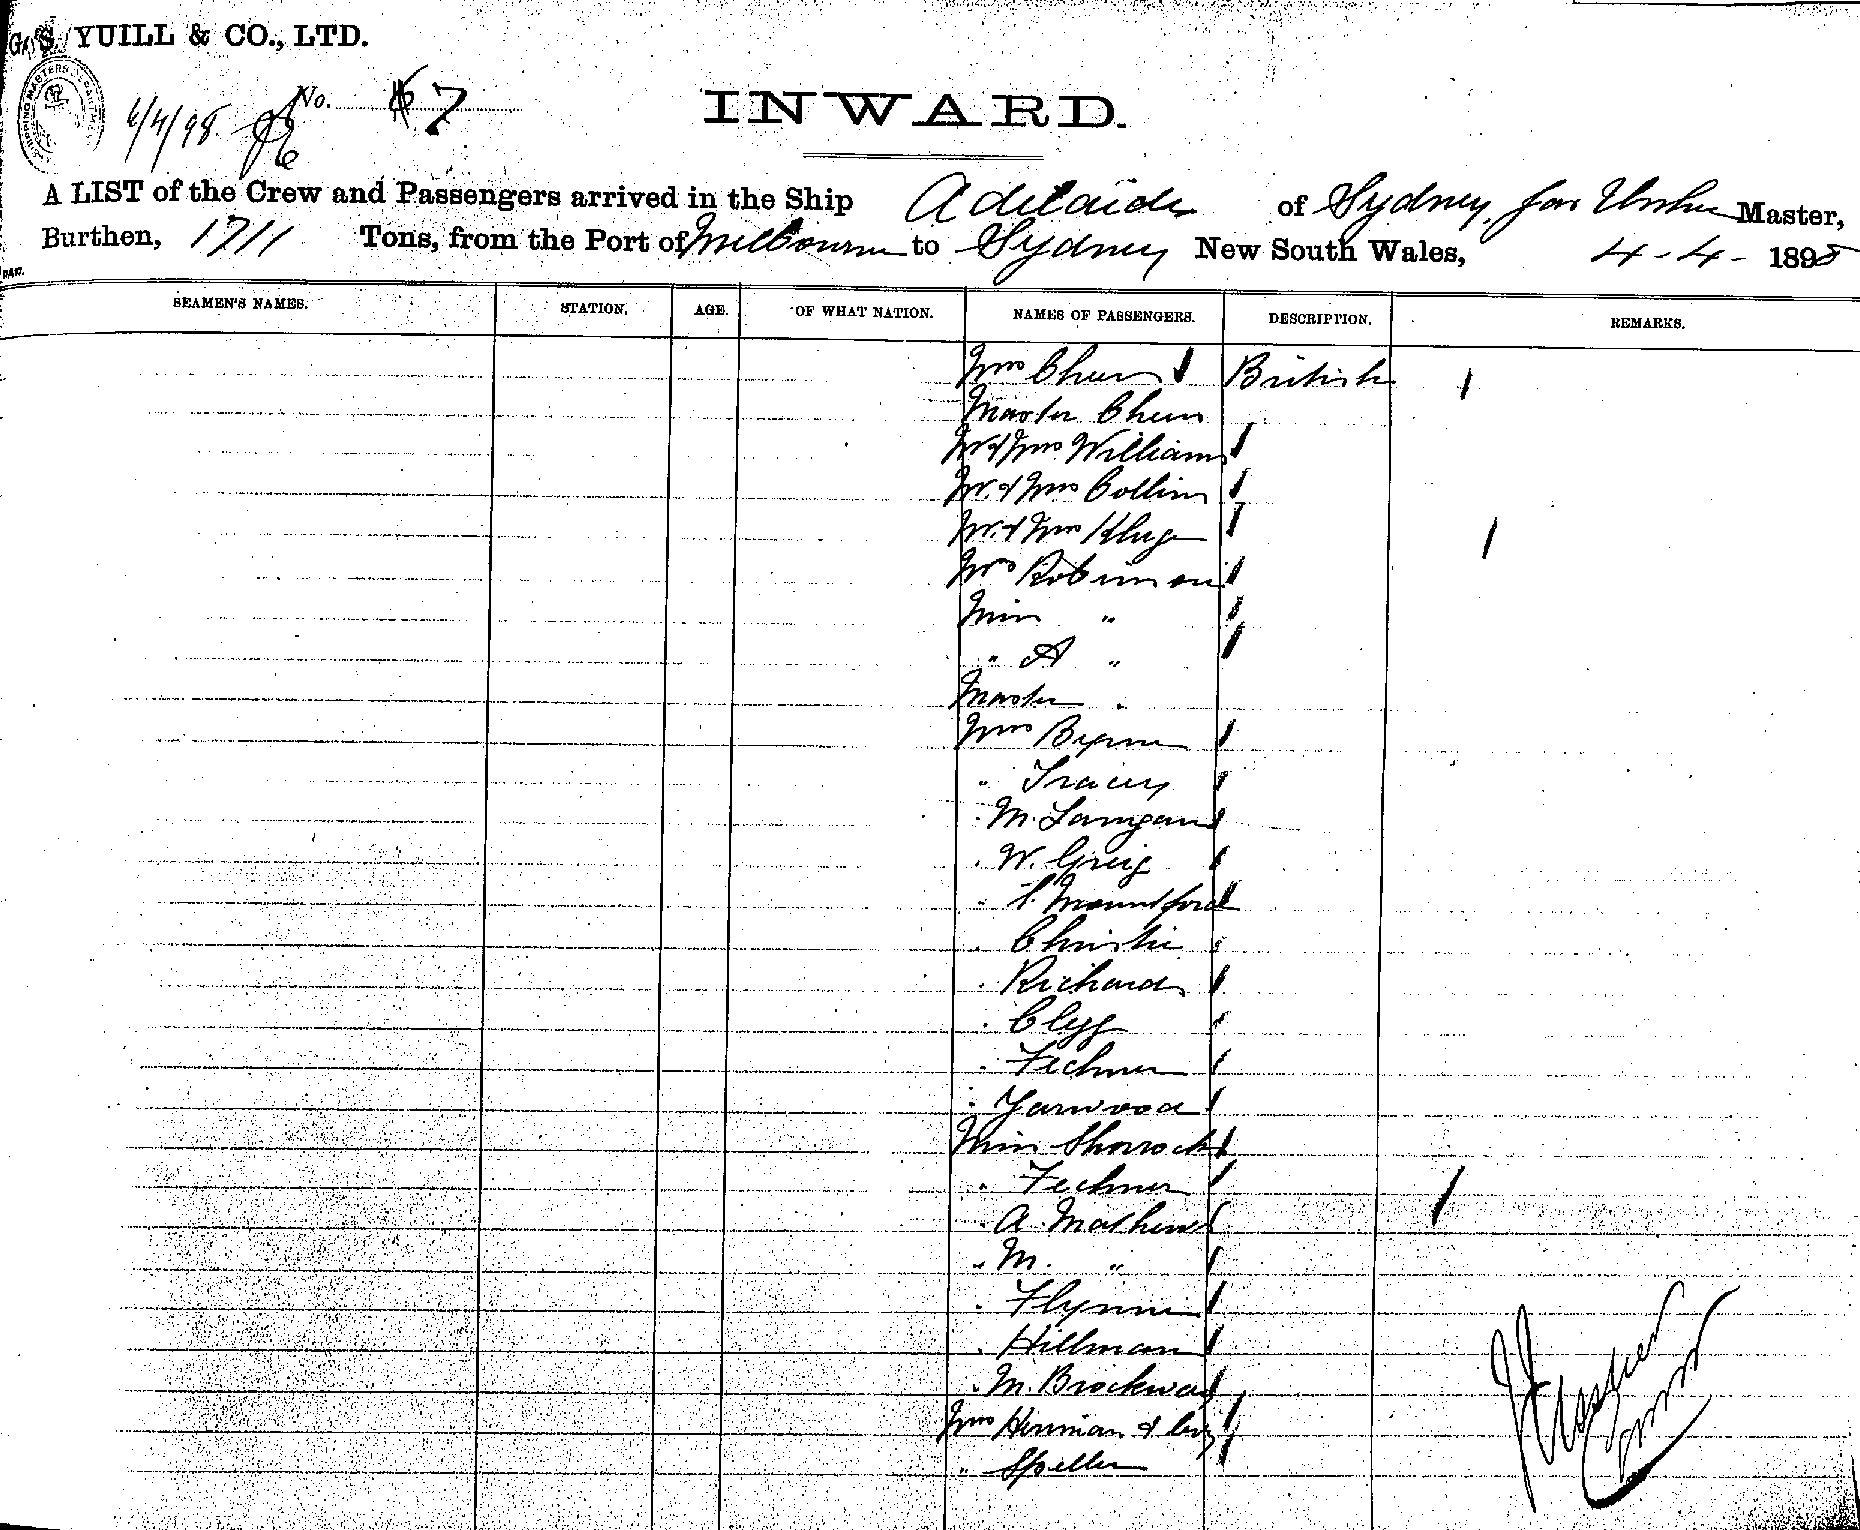 G. S. YUILL & CO., LTD.
SHIPPING MASTERS
6/4/98 No. 7
INWARD.
A LIST of the Crew and Passengers arrived in the Ship Adelaide of Sydney, Master,
Burthen, 1711 Tons, from the Port of Melbourne to Sydney New South Wales, 4-4-1898
SEAMEN'S NAMES. STATION. AGE. OF WHAT NATION. NAMES OF PASSENGERS. DESCRIPTION. REMARKS.
Mrs British
Master
Mr & Mrs Williams
Mr & Mrs Collins
Mr & Mrs Kluge
Mrs Robinson
Miss "
" A "
Master "
Mrs Byrne
" Tracey
" M. Lanigan
" W. Greig
" Mountford
" Christie
" Richards
" Clegg
" Fechner
" Yarwood
Miss Shorrock
" Fechner
" A. Mathews
" M. "
" Flynn
" Hillman
" M. Brockway
Mrs Herman &
" Speller